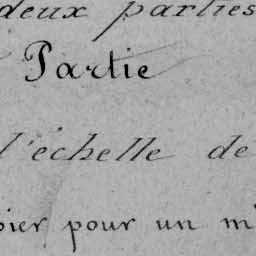 deux parties
Partie
l'échelle de
pour un m